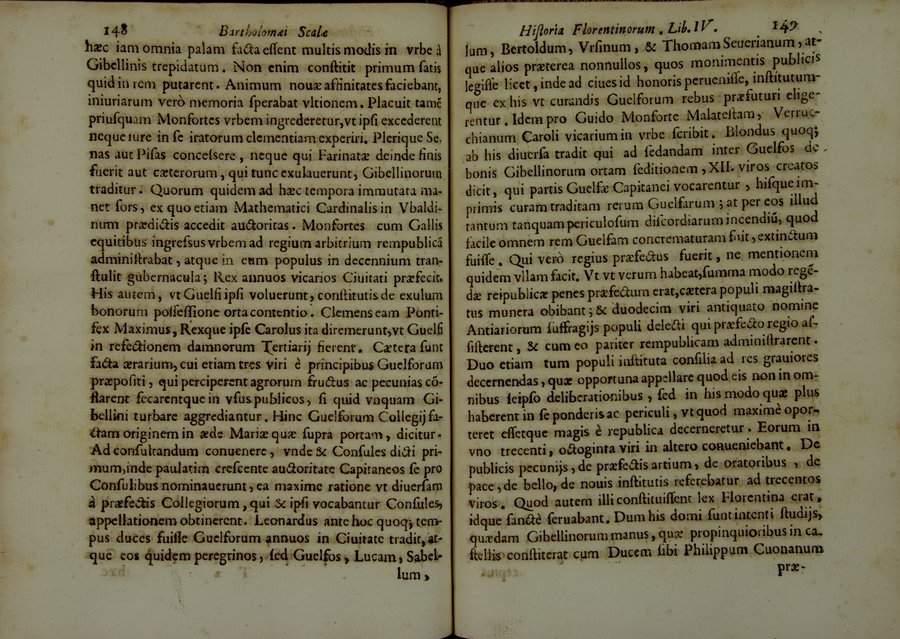 148 Bartholomæi Scalæ
hæc iam omnia palam facta essent multis modis in vrbe à
Gibellinis trepidatum . Non enim constitit primum satis
quid in rem putarent . Animum nouæ affinitates faciebant,
iniuriarum verò memoria sperabat vltionem . Placuit tamẽ
priusquam Monfortes vrbem ingrederetur, vt ipsi excederent
neque iure in se iratorum clementiam experiri. Plerique Se-
nas aut Pisas concessere , neque qui Farinatæ deinde finis
fuerit aut cæterorum , qui tunc exulauerunt, Gibellinorum
traditur . Quorum quidem ad hæc tempora immutata ma-
net sors, ex quo etiam Mathematici Cardinalis in Vbaldi-
num prædictis accedit auctoritas . Monfortes cum Gallis
equitibus ingressus vrbem ad regium arbitrium rempublicã
administrabat , atque in eum populus in decennium tran-
stulit gubernacula ; Rex annuos vicarios Ciuitati præfecit.
His autem , vt Guelfi ipsi voluerunt, constitutis de exulum
bonorum possessione orta contentio . Clemens eam Ponti-
fex Maximus, Rexque ipse Carolus ita diremerunt, vt Guelfi
in refectionem damnorum Tertiarij fierent . Cætera sunt
facta ærarium, cui etiam tres viri è principibus Guelforum
præpositi , qui perciperent agrorum fructus ac pecunias cõ-
flarent secarentque in vsus publicos , si quid vnquam Gi-
bellini turbare aggrediantur . Hinc Guelforum Collegij fa-
ctam originem in æde Mariæ quæ supra portam , dicitur .
Ad consultandum conuenere , vnde & Consules dicti pri-
mum, inde paulatim crescente auctoritate Capitaneos se pro
Consulibus nominauerunt, ea maxime ratione vt diuersam
à præfectis Collegiorum , qui & ipsi vocabantur Consules,
appellationem obtinerent . Leonardus ante hoc quoq; tem-
pus duces fuisse Guelforum annuos in Ciuitate tradit, at-
que eos quidem peregrinos , sed Guelfos , Lucam, Sabel-
lum ,
Historia Florentinorum . Lib. IV . 149
lum , Bertoldum, Vrsinum , & Thomam Seuerianum , at-
que alios præterea nonnullos, quos monimentis publicis
legisse licet , inde ad ciues id honoris peruenisse, institutum-
que ex his vt curandis Guelforum rebus præfuturi elige-
rentur . Idem pro Guido Monforte Malatestam, Verruc-
chianum Caroli vicarium in vrbe scribit . Blondus quoq;
ab his diuersa tradit qui ad sedandam inter Guelfos de
bonis Gibellinorum ortam seditionem , XII. viros creatos
dicit , qui partis Guelfæ Capitanei vocarentur , hisque im-
primis curam traditam rerum Guelfarum ; at per eos illud
tantum tanquam periculosum discordiarum incendiũ, quod
facile omnem rem Guelfam concrematuram fuit , extinctum
fuisse . Qui verò regius præfectus fuerit , ne mentionem
quidem vllam facit. Vt vt verum habeat, summa modo regẽ-
dæ reipublicæ penes præfectum erat, cætera populi magistra-
tus munera obibant ; & duodecim viri antiquato nomine
Antiariorum suffragijs populi delecti qui præfecto regio as-
sisterent , & cum eo pariter rempublicam administrarent .
Duo etiam tum populi instituta consilia ad res grauiores
decernendas, quæ opportuna appellare quod eis non in om-
nibus seipso deliberationibus , sed in his modo quæ plus
haberent in se ponderis ac periculi, vt quod maximè opor-
teret essetque magis è republica decerneretur . Eorum in
vno trecenti , octoginta viri in altero conueniebant . De
publicis pecunijs, de præfectis artium , de oratoribus , de
pace , de bello, de nouis institutis referebatur ad trecentos
viros . Quod autem illi constituissent lex Florentina erat ,
idque sanctè seruabant . Dum his domi sunt intenti studijs,
quædam Gibellinorum manus, quæ propinquioribus in ca-
stellis constiterat cum Ducem sibi Philippum Cuonanum
præ-